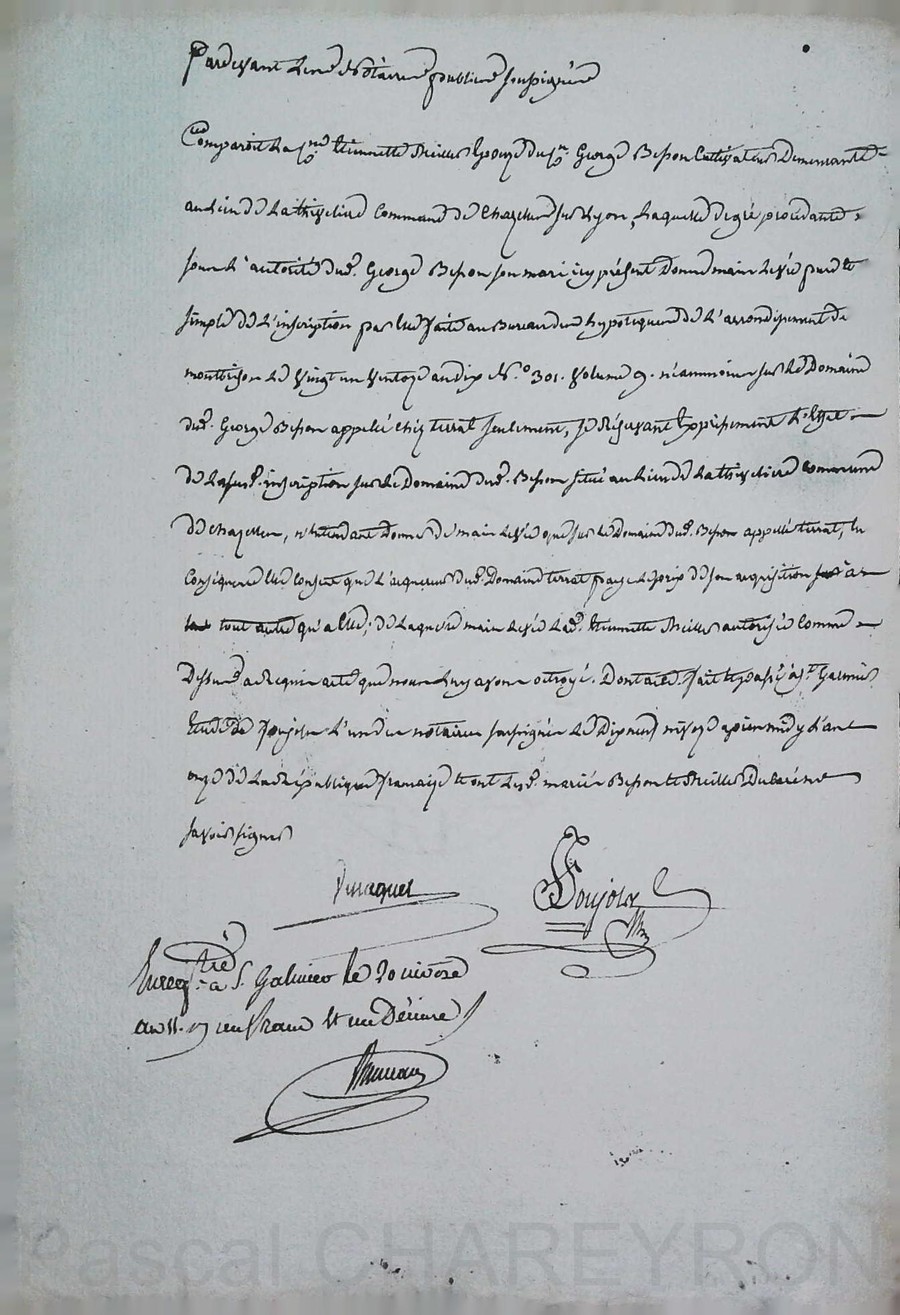 Pardevant les notaires publics soussignés
Comparoit la f.me Etiennette épouse du s.r George Besson cultivateur demeurante
au lieu de la thivelière commune de Chazelles sur Lyon, laquelle de gré procédante
sous l'autorité dud. George Besson son mari icy présent donne main levée pure et
simple de l'inscription par elle faite au Bureau des hypotiques de l'arrondissement de
montbrison le vingt un ventose an dix N.o 301. volume 9. néanmoins sur le Domaine
dud. George Besson appellé chez terrat seulement, se réservant expressement l'effet
de la susd. inscription sur le Domaine dud. Besson situé au lieu de la thivelière commune
de chazelles, n'entendant donner de main levée que sur le Domaine dud. Besson appellé terrat, en
conséquence elle consent que l'acquereur dud. Domaine terrat paye le prix de son acquisition à
tout autre qu'a elle; de laquelle main levée lad. Etiennette autorisée comme
Dessus a requis acte que nous luy avons octroyé. Dont acte. fait et passé à s.t Galmier
Etude de Poujolx l'un des notaires soussignés le Dix neuf nivose après midy l'an
onze de la République française et ont les d. mariés Besson et déclaré ne
savoir signer
Poujolx
Enreg.tré à S. Galmier le 20 nivose
an 11. Reçu un franc et un Décime
Pascal CHAREYRON